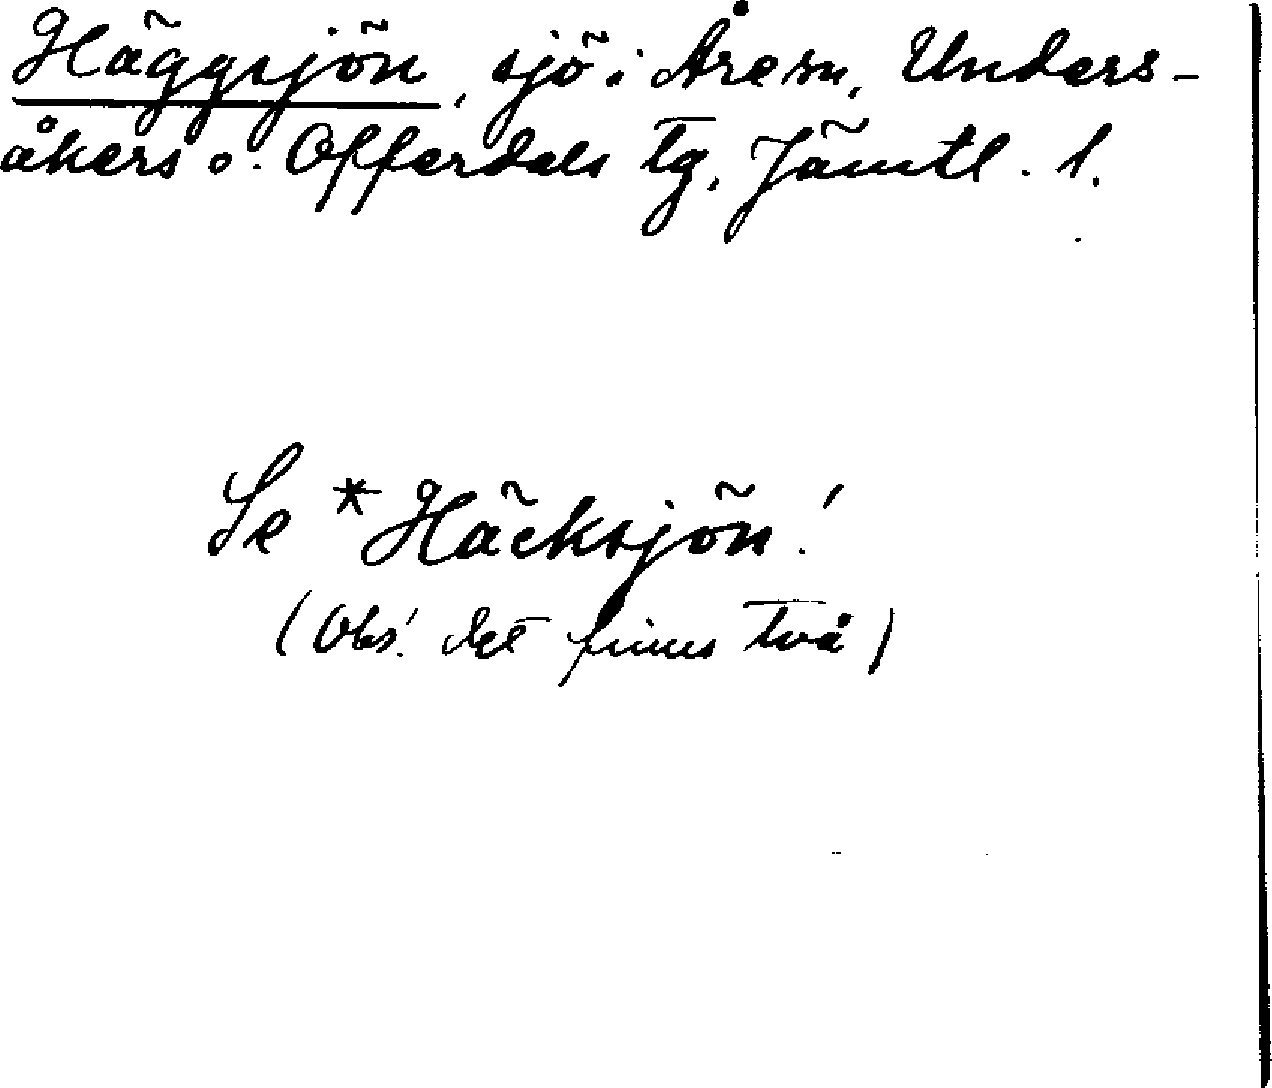 Häggsjön, sjö i Åre sn, Unders-
åkers o. Offerdals tg, Jämtl. l.
Se *Häcksjön!
(Obs! det finns två)